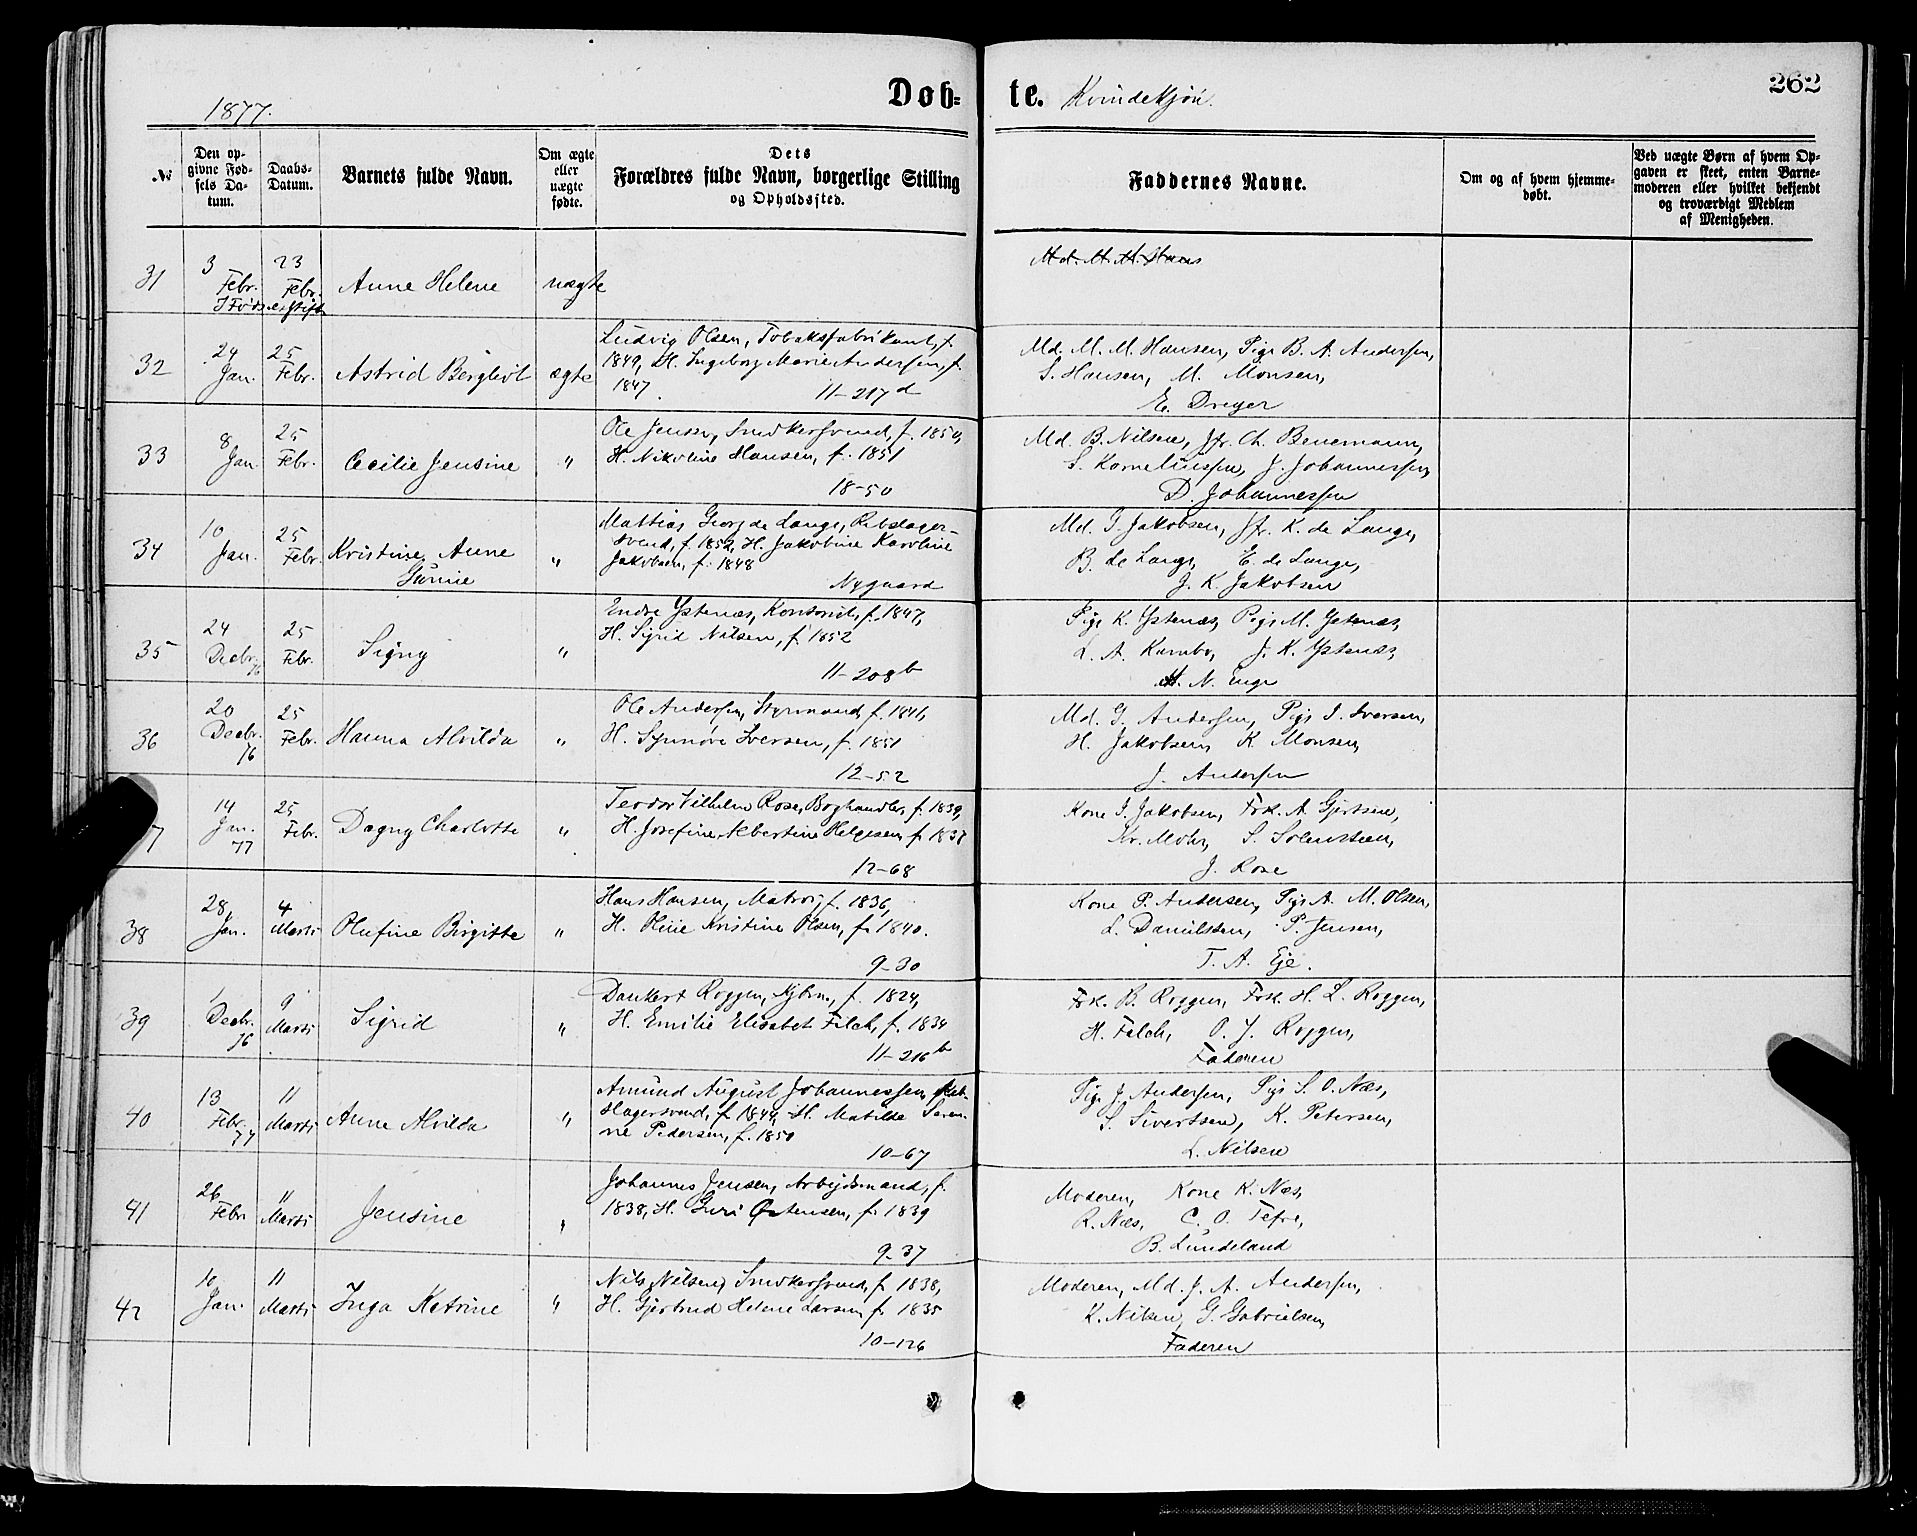 262
Døb-te. Kvindekjøn.
1877.
№
Den opgivne Fødsels Datum.
Daabs-Datum.
Barnets fulde Navn.
Om ægte eller uægte fødte.
Dets Forældres fulde Navn, borgerlige Stilling og Opholdssted.
Faddernes Navne.
Om og af hvem hjemmedøbt.
Ved uægte Børn af hvem Opgaven er skeet, enten Barnemoderen eller hvilket bekjendt og troværdigt Medlem af Menigheden.
31 3 Febr. 23 Febr. Anne Helene uægte
Md. M. M. Hans
32 24 Jan. 25 Febr. Astrid Bergliot ægte
Ludvig Olsen, Tobaksfabrikant, f.
1849, H. Ingeborg Marie Andersen, f.
1847. 11-217 d
Md. M. M. Hansen, Pige B. A. Andersen,
S. Hansen, M. Monsen,
E. Dreyer
33 8 Jan. 25 Febr. Cecilie Jensine "
Ole Jensen, Snedkersvend, f. 1850,
H. Nikoline Hansen, f. 1851
18-50
Md. B. Nilsen, Jfr. Ch. Benemann,
S. Korneliussen, J. Johannessen,
D. Johannessen
34 10 Jan. 25 Febr. Kristine Anne "
Mattias Georg de Lange, Rebslager-
svend, f. 1852, H. Jakobine Karoline
Jakobsen, f. 1848
Nygaard
Md. G. Jakobsen, Jfr. K. de Lange,
B. de Lange, E. de Lange,
J. K. Jakobsen
35 24 Decbr. 76 25 Febr. Signy "
Endre Ystenæs, f. 1847,
H. Sigrid Nilsen, f. 1852
11-208 b
Pige K. Ystenæs, Pige M. Ystenæs,
L. A. J. K. Ystenæs,
36 20 Decbr. 76 25 Febr. Hanna Alvilda "
Ole Andersen, Styrmand, f. 1846,
H. Synnøve Iversen, f. 1851
12-52
Md. G. Andersen, Pige I. Iversen,
H. Jakobsen, K. Monsen,
J. Andersen
7 14 Jan. 77 25 Febr. Dagny Charlotte "
Teodor Vilhelm Rose, Boghandler, f. 1839,
H. Josefine Albertine Helgesen, f. 1837
12-68
Kone I. Jakobsen, Frk. A. Gjertsen,
Kr. Mohr, S. Solemsteen,
J. Rose
38 28 Jan. 4 Marts Olufine Birgitte "
Hans Hansen, Matros, f. 1836,
H. Oline Kristine Olsen, f. 1840.
9-30
Kone P. Andersen, Pige A. M. Olsen,
L. Danielssen, P. Jensen,
T. A. Eje.
39 1 Decbr. 76 9 Marts Sigrid "
Dankert Roggen, Kjbm., f. 1824,
H. Emilie Elisabet Falch, f. 1834
11-216 b
Frk. B. Roggen, Frk. H. L. Roggen,
H. Falch, O. J. Roggen,
Faderen
40 13 Febr. 77 11 Marts Anne Alvilda "
Amund August Johannessen, Reb-
slagersvend, f. 1844, H. Matilde Seve-
rine Pedersen, f. 1850
10-67
Pige J. Andersen, Pige S. O. Næs,
S. Sivertsen, K. Petersen,
L. Nilsen
41 26 Febr. 11 Marts Jensine "
Johannes Jensen, Arbeidsmand, f.
1838, H. Guri Østensen, f. 1839
9-37
Moderen, Kone K. Næs,
R. Næs, C. O. Tefre,
B. Lundeland
42 10 Jan. 11 Marts Inga Katrine "
Nils Nilsen, Snedkersvend, f. 1838,
H. Gjertrud Helene Larsen, f. 1835
10-126
Moderen, Md. J. A. Andersen,
K. Nilsen, G. Gabrielsen,
Faderen